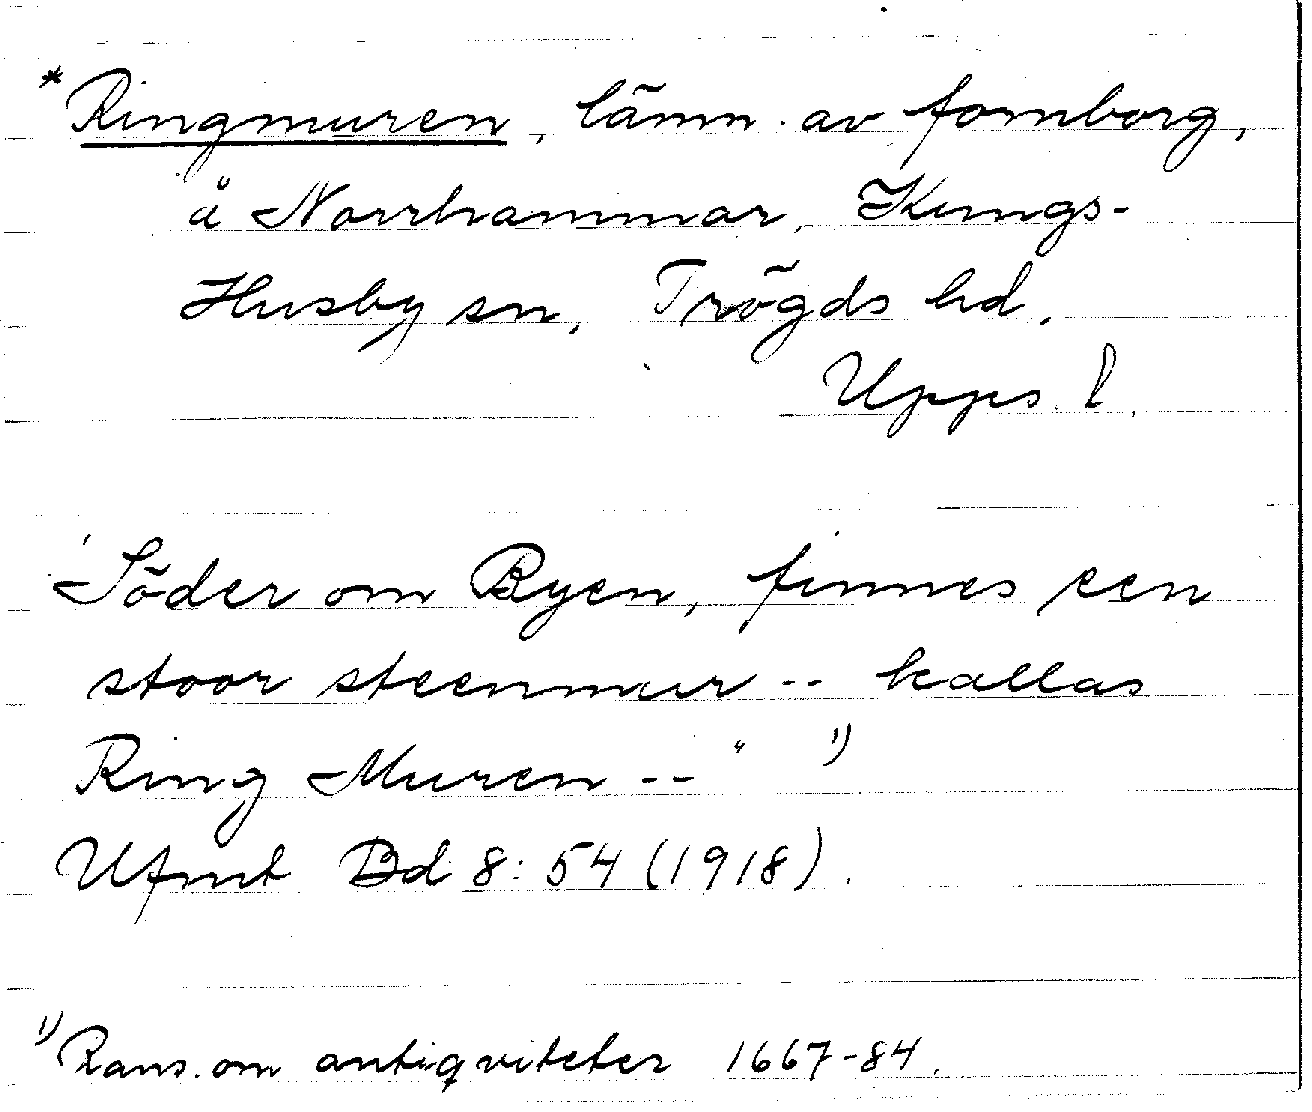 * Ringmuren, lämn. av fornborg,
å Norrhammar, Kungs-
Husby sn, Trögds hd,
Upps. l.
'Söder om Byen, finnes een
stoor steenmur -- kallas
Ring Muren -- " 1)
Ufmt Bd 8: 54 (1918).
1) Rans. om antiqviteter 1667-84.